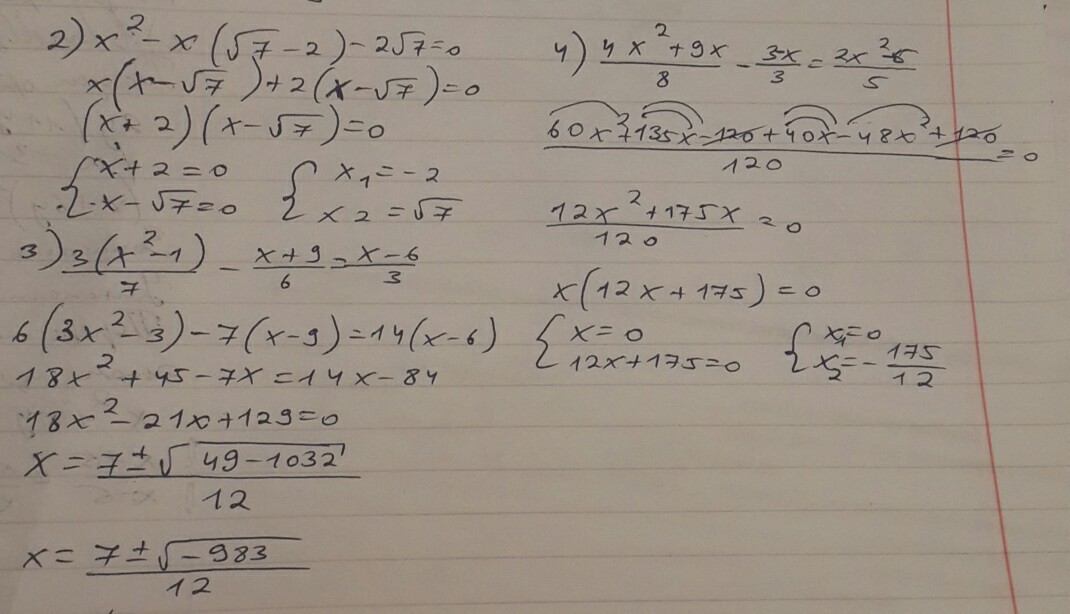 2) x² - x (√7 - 2) - 2√7 = 0
x(x - √7) + 2(x - √7) = 0
(x + 2)(x - √7) = 0
{ x + 2 = 0 { x₁ = -2
x - √7 = 0 x 2 = √7
3) 3(x² - 1)/7 - x + 9/6 = x - 6/3
6(3x² - 3) - 7(x - 9) = 14(x - 6)
18x² + 45 - 7x = 14x - 84
18x² - 21x + 129 = 0
x = 7 ± √49 - 1032/12
x = 7 ± √-983/12
4) 4x² + 9x/8 - 3-x/3 = 2x² - 6/5
60x² + 135x - 120 + 40x - 48x² + 120/120 = 0
12x² + 175x/120 = 0
x(12x + 175) = 0
{ x = 0 { x₁ = 0
12x + 175 = 0 x₂ = - 175/12